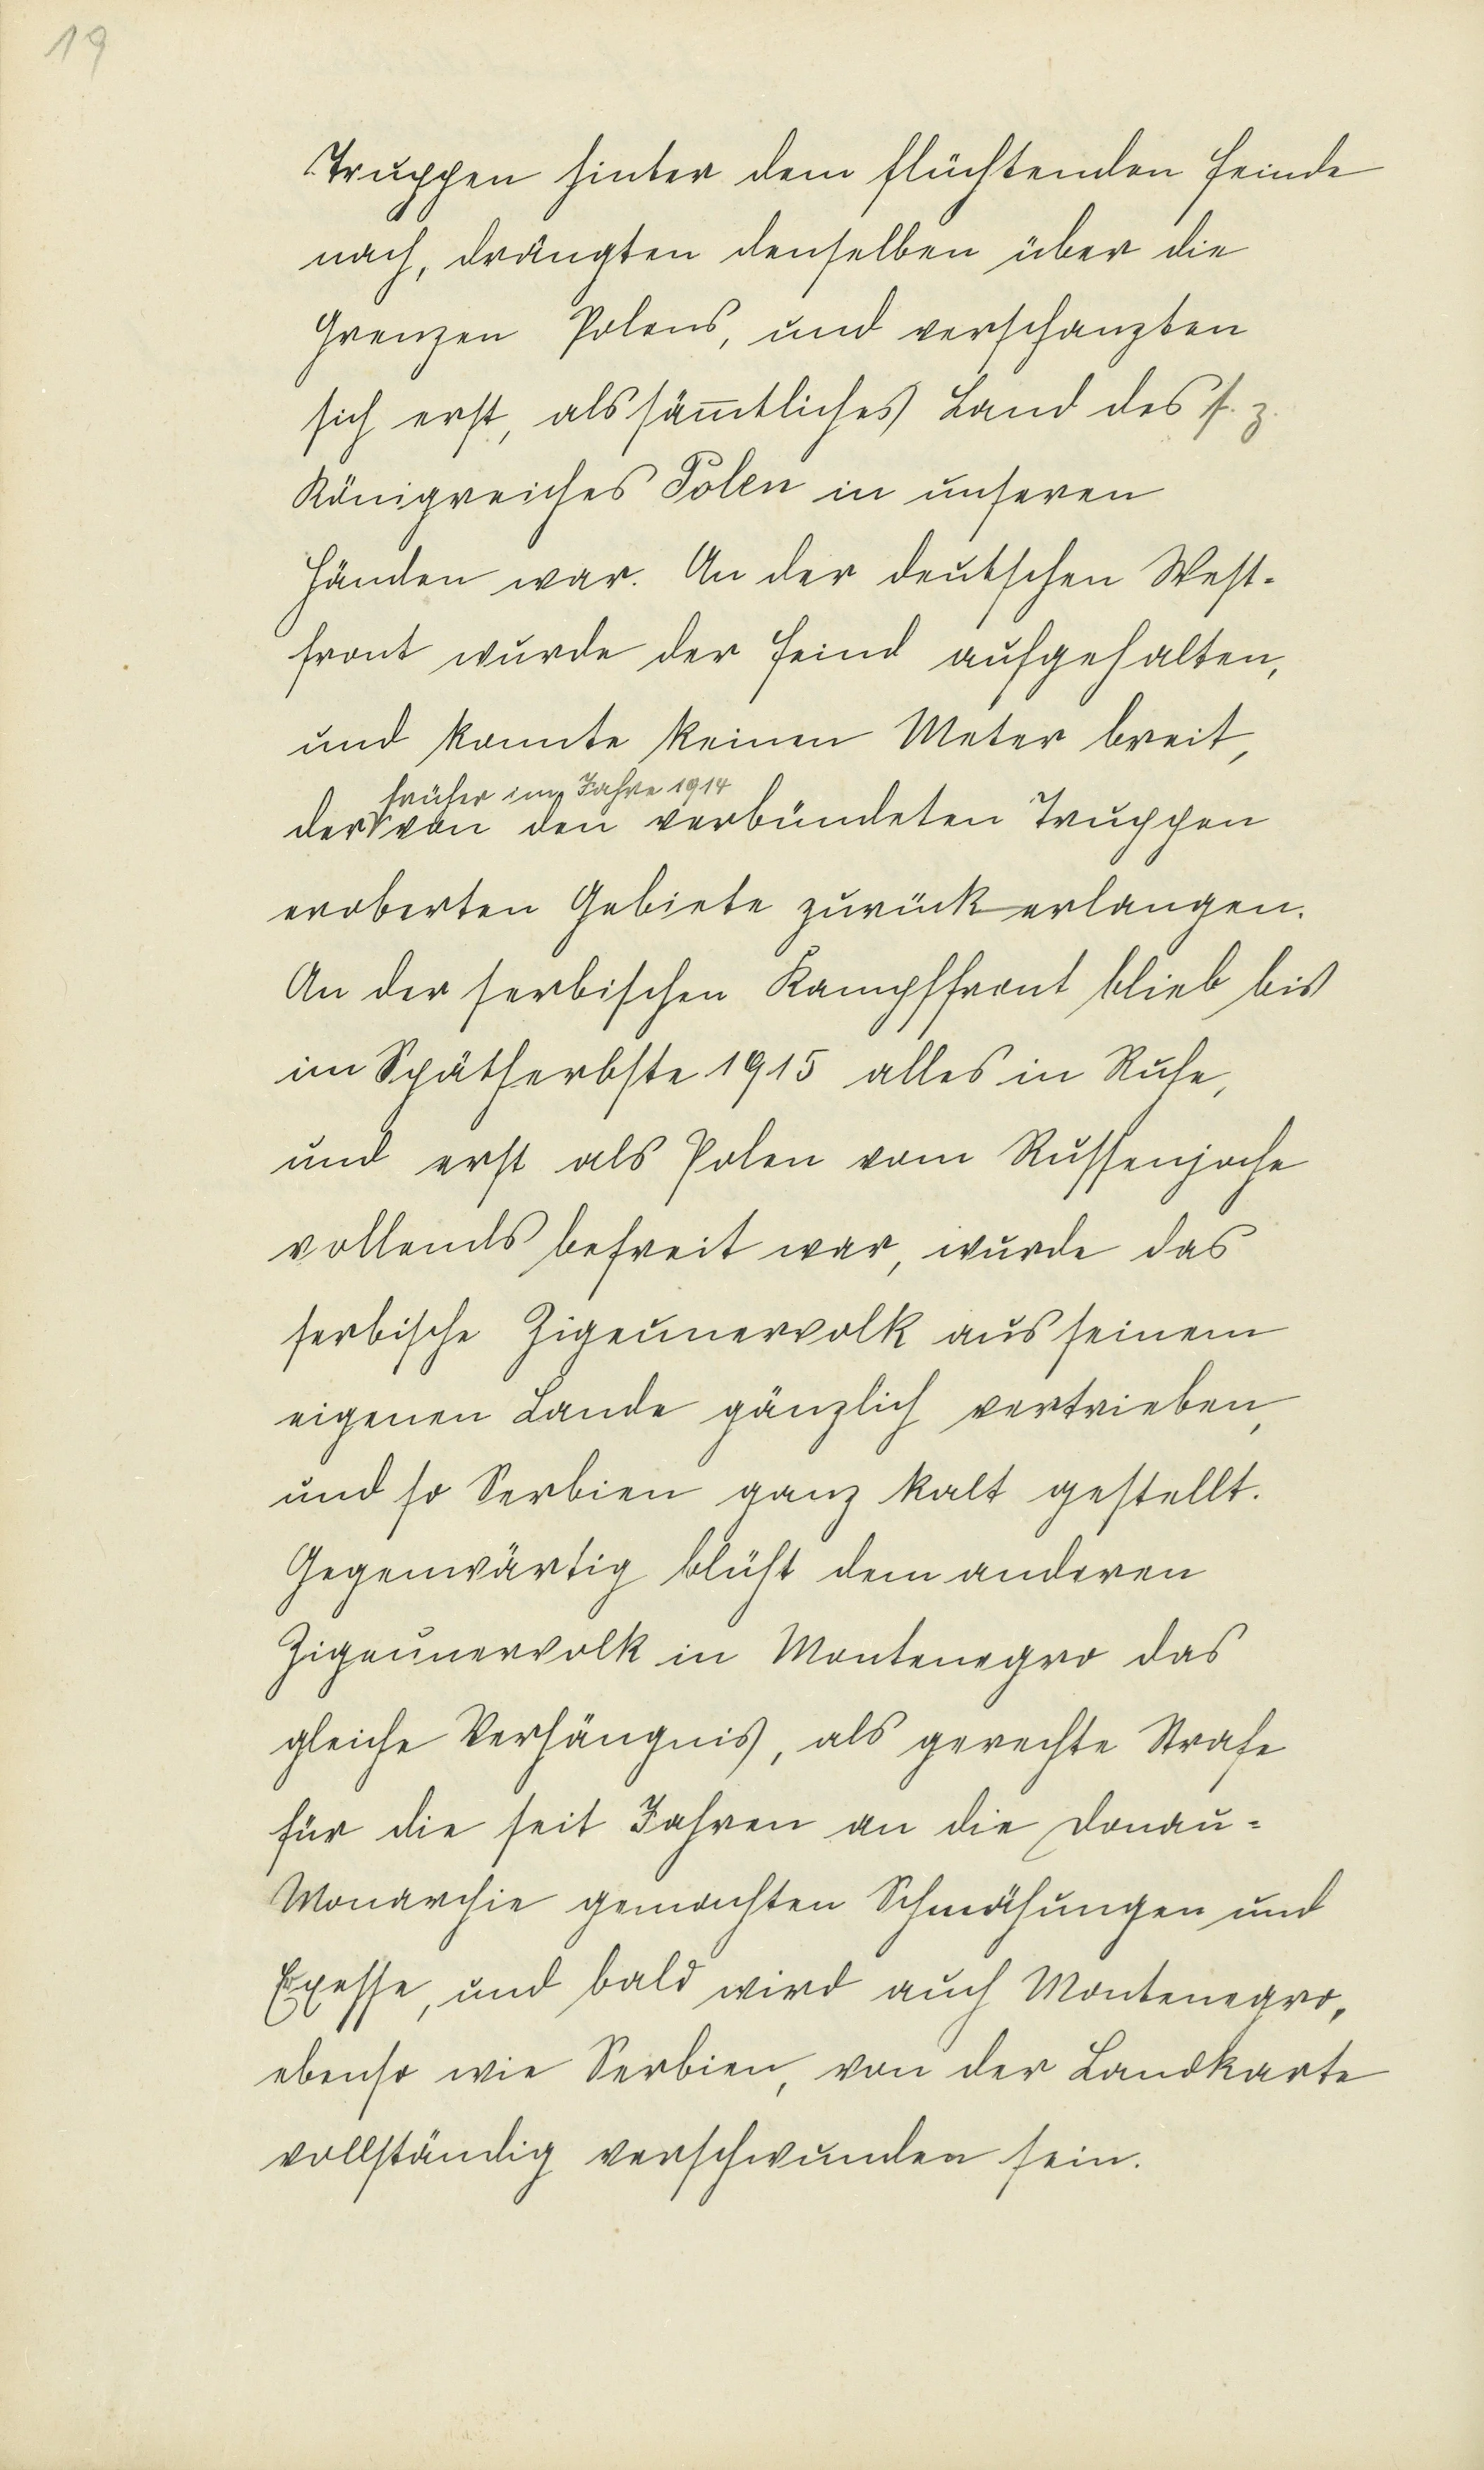 19
Truppen hinter dem flüchtenden Feinde
nach, drängten denselben über die
Grenzen Polens, und verschanzten
sich erst, als säm̅tliches Land des s. z.
Königreiches Polen in unseren
Händen war. An der deutschen West-
front wurde der Feind aufgehalten,
und konnte keinen Meter breit,
früher im Jahre 1914
der von den verbündeten Truppen
eroberten Gebiete zurück erlangen.
An der serbischen Kampffront blieb bis
im Spätherbste 1915 alles in Ruhe,
und erst als Polen vom Russenjoche
vollends befreit war, wurde das
serbische Zigeunervolk aus seinem
eigenen Lande gänzlich vertrieben,
und so Serbien ganz kalt gestellt.
Gegenwärtig blüht dem anderen
Zigeunervolk in Montenegro das
gleiche Verhängnis, als gerechte Strafe
für die seit Jahren an die Donau-
Monarchie gemachten Schmähungen und
Exesse, und bald wird auch Montenegro,
ebenso wie Serbien, von der Landkarte
vollständig verschwunden sein.